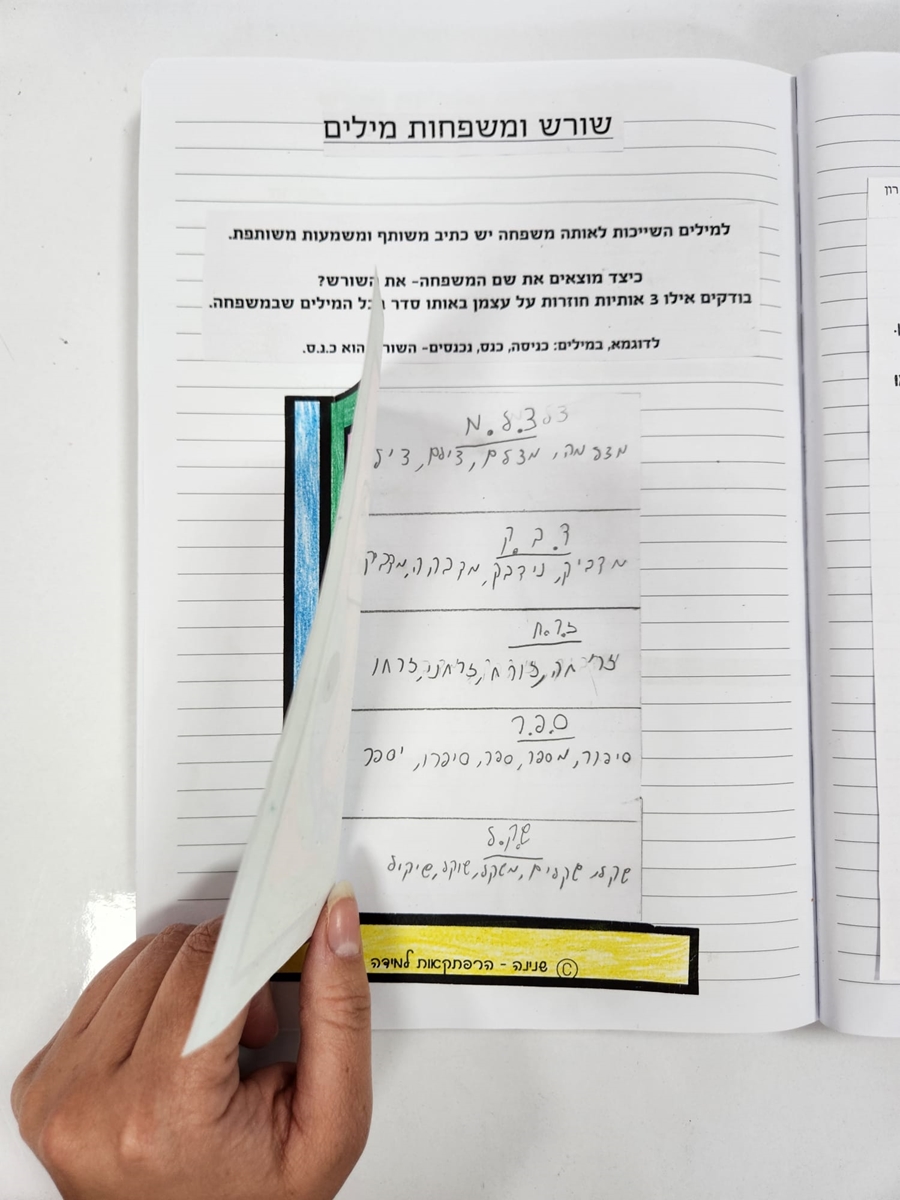 שורש ומשפחות מילים
למילים השייכות לאותה משפחה יש כתיב משותף ומשמעות משותפת.
כיצד מוצאים את שם המשפחה- את השורש?
בודקים אילו 3 אותיות חוזרות על עצמן באותו סדר בכל המילים שבמשפחה.
לדוגמא, במילים: כניסה, כנס, נכנסים- השורש הוא כ.נ.ס.
צ.ל.מ
מצלמה, מצלם, צילם,
ד.ב.ק
מדביק, נידבק, מדבקה, מדביק
ז.ר.ח
זריחה, זורח, זרחני, זרחו
ס.פ.ר
סיפור, מספר, ספר, סיפרו, יספר
ש.ק.ל
שקל, שקלים, משקל, שוקל, שיקול
© שנינה - הרפתקאות למידה
רון